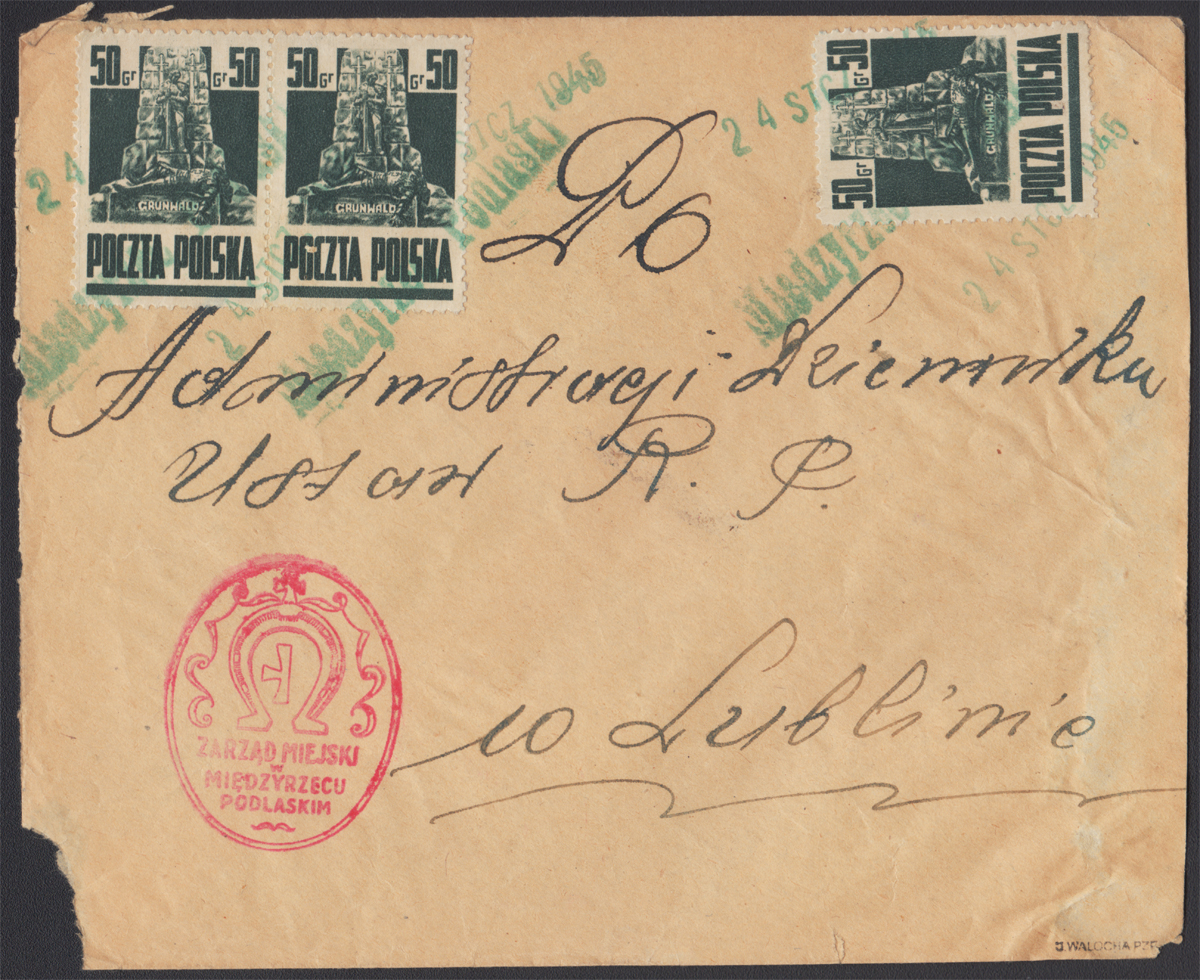 50 Gr Gr 50
GRUNWALD
POCZTA POLSKA
50 Gr Gr 50
GRUNWALD
POCZTA POLSKA
50 Gr Gr 50
GRUNWALD
POCZTA POLSKA
24 STCZ 1946
Podlaski
24 STCZ 1946
24 STCZ 1946
Do
Administracji Dziennika
Ustaw R. P.
w Lublinie
ZARZĄD MIEJSKI
W
MIĘDZYRZECU
PODLASKIM
J. WALOCHA PZF